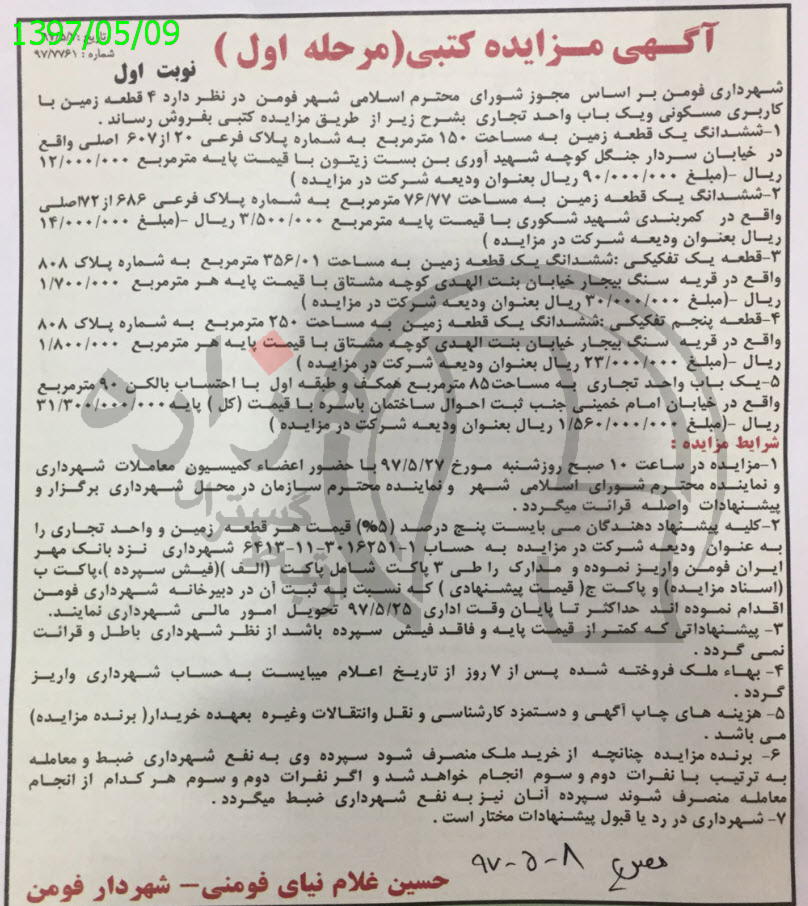 1397/05/09
تاریخ : ۹۷/۵/۷
شماره : ۹۷/۷۷۶۱
آگهی مزایده کتبی(مرحله اول )
نوبت اول
شهرداری فومن بر اساس مجوز شورای محترم اسلامی شهر فومن در نظر دارد ۴ قطعه زمین با
کاربری مسکونی ویک باب واحد تجاری بشرح زیر از طریق مزایده کتبی بفروش رساند .
۱-ششدانگ یک قطعه زمین به مساحت ۱۵۰ مترمربع به شماره پلاک فرعی ۲۰ از۶۰۷ اصلی واقع
در خیابان سردار جنگل کوچه شهید آوری بن بست زیتون با قیمت پایه مترمربع ۱۲/۰۰۰/۰۰۰
ریال -(مبلغ ۹۰/۰۰۰/۰۰۰ ریال بعنوان ودیعه شرکت در مزایده )
۲-ششدانگ یک قطعه زمین به مساحت ۷۶/۷۷ مترمربع به شماره پلاک فرعی ۶۸۶ از۷۲اصلی
واقع در کمربندی شهید شکوری با قیمت پایه مترمربع ۳/۵۰۰/۰۰۰ ریال -(مبلغ ۱۴/۰۰۰/۰۰۰
ریال بعنوان ودیعه شرکت در مزایده )
۳-قطعه یک تفکیکی :ششدانگ یک قطعه زمین به مساحت ۳۵۶/۰۱ مترمربع به شماره پلاک ۸۰۸
واقع در قریه سنگ بیجار خیابان بنت الهدی کوچه مشتاق با قیمت پایه هر مترمربع ۱/۷۰۰/۰۰۰
ریال -(مبلغ ۳۰/۰۰۰/۰۰۰ ریال بعنوان ودیعه شرکت در مزایده )
۴-قطعه پنجم تفکیکی :ششدانگ یک قطعه زمین به مساحت ۲۵۰ مترمربع به شماره پلاک ۸۰۸
واقع در قریه سنگ بیجار خیابان بنت الهدی کوچه مشتاق با قیمت پایه هر مترمربع ۱/۸۰۰/۰۰۰
ریال -(مبلغ ۲۳/۰۰۰/۰۰۰ ریال بعنوان ودیعه شرکت در مزایده )
۵-یک باب واحد تجاری به مساحت۸۵ مترمربع همکف و طبقه اول با احتساب بالکن ۹۰ مترمربع
واقع در خیابان امام خمینی جنب ثبت احوال ساختمان یاسره با قیمت (کل ) پایه۳۱/۳۰۰/۰۰۰/۰۰۰
ریال -(مبلغ ۱/۵۶۰/۰۰۰/۰۰۰ ریال بعنوان ودیعه شرکت در مزایده )
شرایط مزایده :
۱-مزایده در ساعت ۱۰ صبح روزشنبه مورخ ۹۷/۵/۲۷ با حضور اعضاء کمیسیون معاملات شهرداری
و نماینده محترم شورای اسلامی شهر و نماینده محترم سازمان در محل شهرداری برگزار و
پیشنهادات واصله قرائت میگردد .
۲-کلیه پیشنهاد دهندگان می بایست پنج درصد (۵%) قیمت هر قطعه زمین و واحد تجاری را
به عنوان ودیعه شرکت در مزایده به حساب ۱-۳۰۱۶۲۵۱-۱۱-۶۲۱۳ شهرداری نزد بانک مهر
ایران فومن واریز نموده و مدارک را طی ۳ پاکت شامل پاکت (الف )(فیش سپرده )،پاکت ب
(اسناد مزایده) و پاکت ج( قیمت پیشنهادی ) که نسبت به ثبت آن در دبیرخانه شهرداری فومن
اقدام نموده اند حداکثر تا پایان وقت اداری ۹۷/۵/۲۵ تحویل امور مالی شهرداری نمایند.
۳- پیشنهاداتی که کمتر از قیمت پایه و فاقد فیش سپرده باشد از نظر شهرداری باطل و قرائت
نمی گردد .
۴- بهاء ملک فروخته شده پس از ۷ روز از تاریخ اعلام میبایست به حساب شهرداری واریز
گردد .
۵- هزینه های چاپ آگهی و دستمزد کارشناسی و نقل وانتقالات وغیره بعهده خریدار( برنده مزایده)
می باشد .
۶- برنده مزایده چنانچه از خرید ملک منصرف شود سپرده وی به نفع شهرداری ضبط و معامله
به ترتیب با نفرات دوم و سوم انجام خواهد شد و اگر نفرات دوم و سوم هر کدام از انجام
معامله منصرف شوند سپرده آنان نیز به نفع شهرداری ضبط میگردد .
۷- شهرداری در رد یا قبول پیشنهادات مختار است .
۹۷-۵-۸
حسین غلام نیای فومنی- شهردار فومن